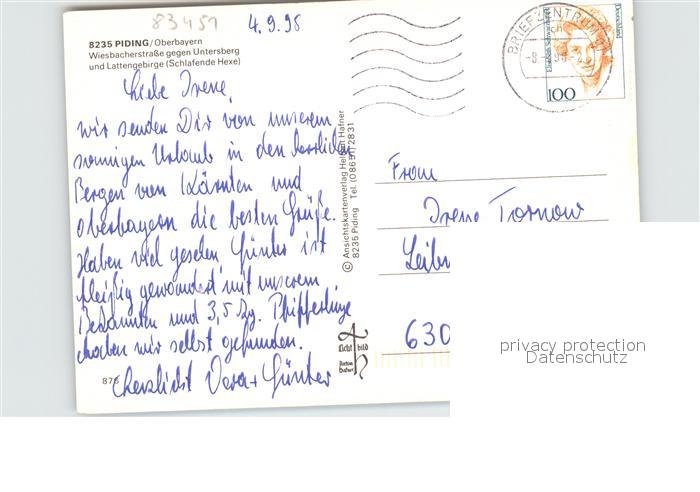 83451
4.9.98
8235 PIDING/Oberbayern
Wiesbacherstraße gegen Untersberg
und Lattengebirge (Schlafende Hexe)
Liebe Irene,
wir senden Dir von unserem
sonnigen Urlaub in den herrlichen
Bergen von Kärnten und
Oberbayern die besten Grüße.
Haben viel gesehen, Günter ist
fleißig gewandert mit unserem
Bekannten und 3,5 kg. Pfifferlinge
haben wir selbst gefunden.
Herzlichst Vera + Günter
876
© Ansichtskartenverlag Helmut Hafner
8235 Piding Tel. (08651) 2831
BRIEFZENTRUM
Elisabeth Schwarzhaupt
Deutschland
100
Frau
Irene Tornow
Leibn
630
privacy protection
Datenschutz